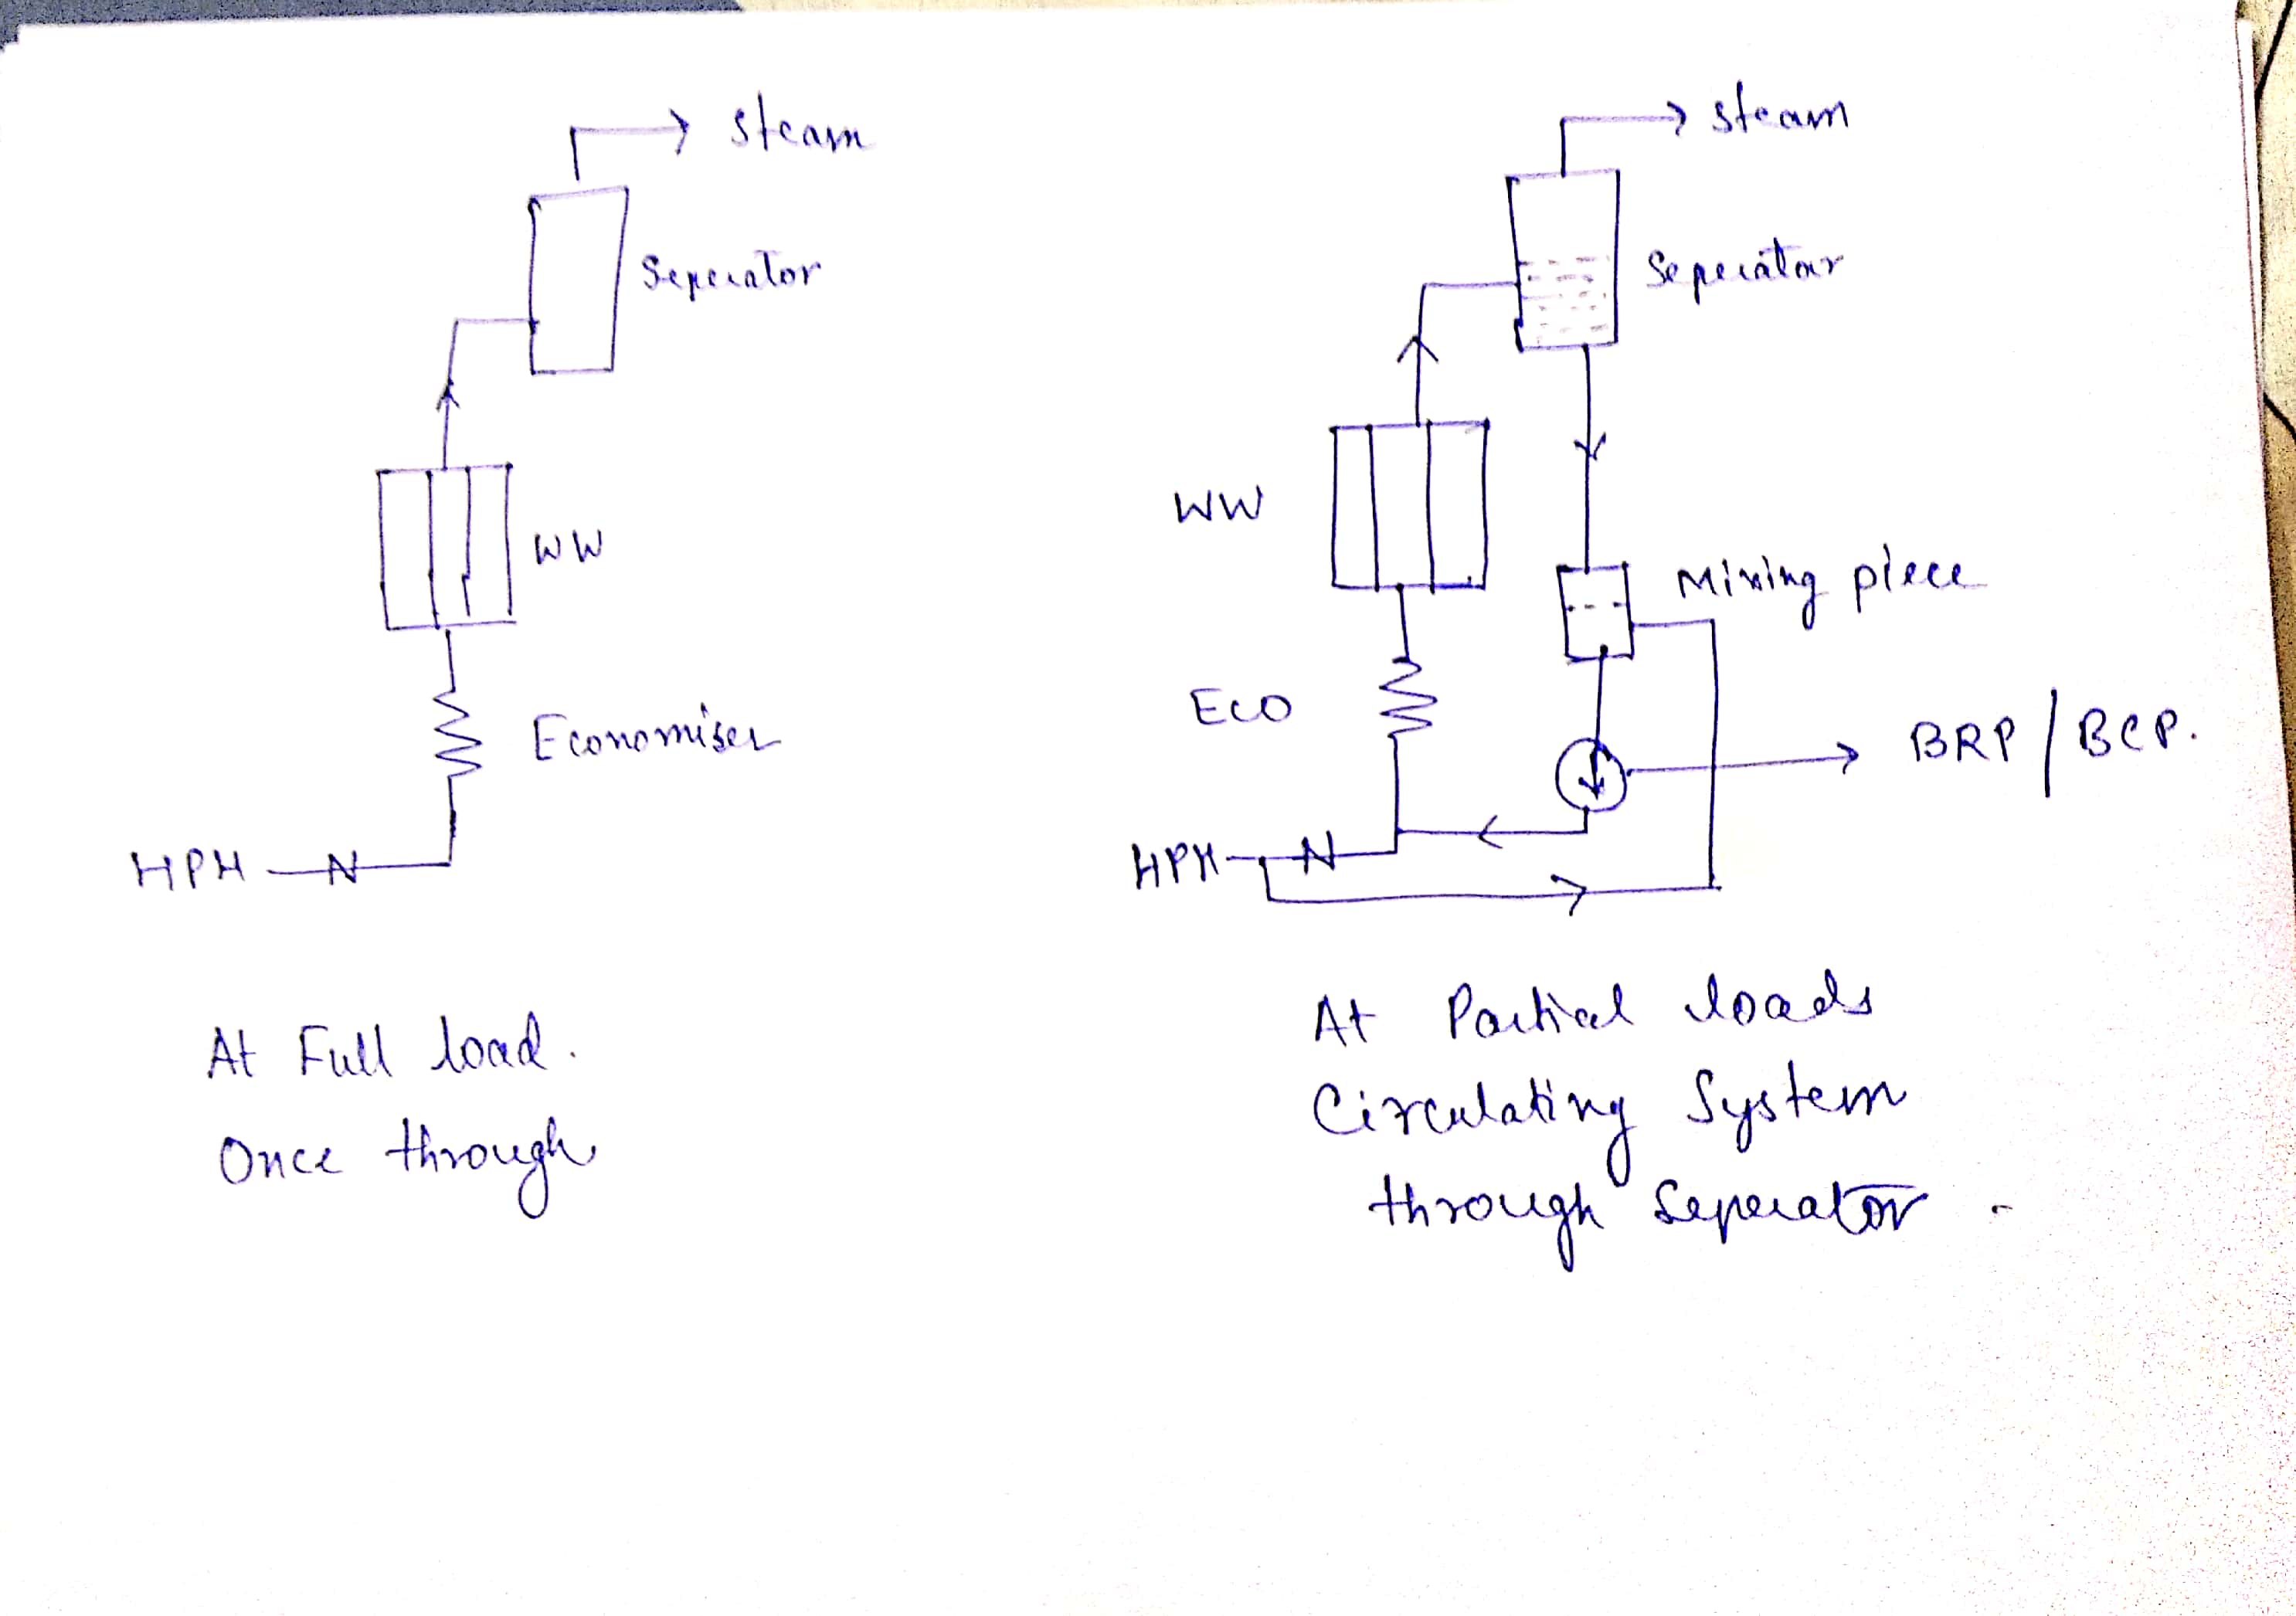 steam
Seperator
WW
Economiser
HPH
At Full load.
Once through
steam
Seperator
WW
Mixing piece
ECO
BRP / BCP.
HPH
At Partial loads
Circulating System
through Seperator.